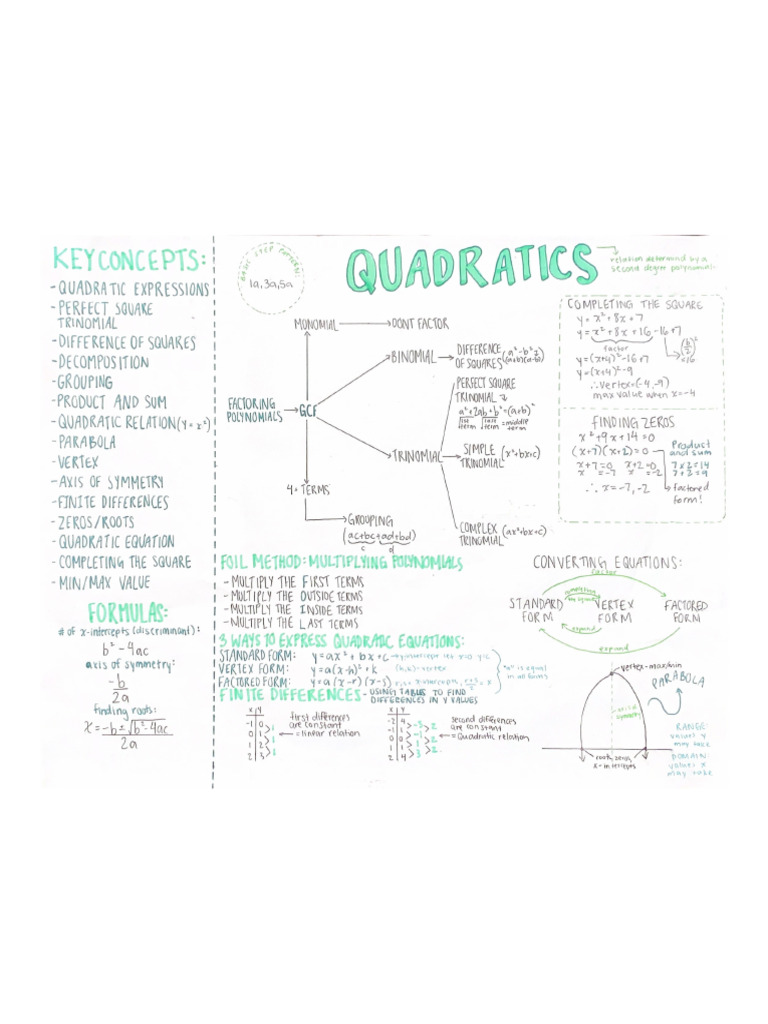 KEY CONCEPTS:
-QUADRATIC EXPRESSIONS
-PERFECT SQUARE
TRINOMIAL
-DIFFERENCE OF SQUARES
-DECOMPOSITION
-GROUPING
-PRODUCT AND SUM
-QUADRATIC RELATION (y=x²)
-PARABOLA
-VERTEX
-AXIS OF SYMMETRY
-FINITE DIFFERENCES
-ZEROS/ROOTS
-QUADRATIC EQUATION
-COMPLETING THE SQUARE
-MIN/MAX VALUE
FORMULAS:
# of x-intercepts (discriminant):
b²-4ac
axis of symmetry:
-b
2a
finding roots:
x=-b±√b²-4ac
2a
BASIC STEP PATTERN:
1a, 3a, 5a
QUADRATICS
relation determined by a
second degree polynomial.
MONOMIAL
DONT FACTOR
BINOMIAL
DIFFERENCE
OF SQUARES
(a+b)(a-b)
FACTORING
POLYNOMIALS
GCF
PERFECT SQUARE
TRINOMIAL
a²+2ab+b²=(a+b)²
1st term
last term
=middle term
TRINOMIAL
SIMPLE (x²+bx+c)
TRINOMIAL
4+ TERMS
GROUPING
(ac+bc+ad+bd)
c d
COMPLEX (ax²+bx+c)
TRINOMIAL
COMPLETING THE SQUARE
y=x²+8x+7
y=x²+8x+16-16+7
factor
(b/2)²
=16
y=(x+4)²-16+7
y=(x+4)²-9
∴vertex=(-4,-9)
max value when x=-4
FINDING ZEROS
x²+9x+14=0
(x+7)(x+2)=0
x+7=0 x+2=0
x=-7 x=-2
∴ x=-7,-2
Product
and sum
7×2=14
7+2=9
factored
form!
FOIL METHOD: MULTIPLYING POLYNOMIALS
-MULTIPLY THE FIRST TERMS
-MULTIPLY THE OUTSIDE TERMS
-MULTIPLY THE INSIDE TERMS
-MULTIPLY THE LAST TERMS
3 WAYS TO EXPRESS QUADRATIC EQUATIONS:
STANDARD FORM: y=ax²+bx+c
VERTEX FORM: y=a(x-h)²+k (h,k)=vertex
FACTORED FORM: y=a(x-r)(x-s)
"a" is equal
in all forms
FINITE DIFFERENCES- USING TABLES TO FIND
DIFFERENCES IN Y VALUES
x y
-1 0
0 1
1 2
2 3
1
1
1
first differences
are constant
=linear relation
x y
-2 4
-1 1
0 0
1 1
2 4
-3
-1
1
3
2
2
2
second differences
are constant
=Quadratic relation
CONVERTING EQUATIONS:
factor
completing
the square
STANDARD
FORM
VERTEX
FORM
FACTORED
FORM
expand
expand
vertex-max/min
axis of
symmetry
PARABOLA
roots, zeros,
x-intercepts
RANGE:
values y
may take
DOMAIN:
values x
may take